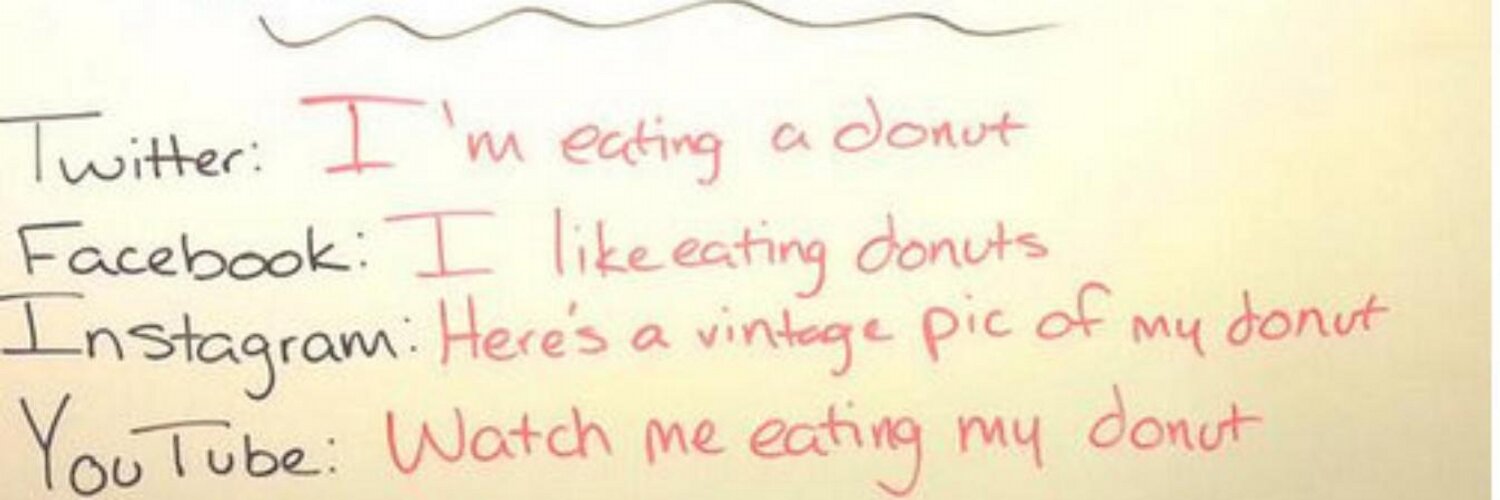 Twitter: I'm eating a donut
Facebook: I like eating donuts
Instagram: Here's a vintage pic of my donut
YouTube: Watch me eating my donut